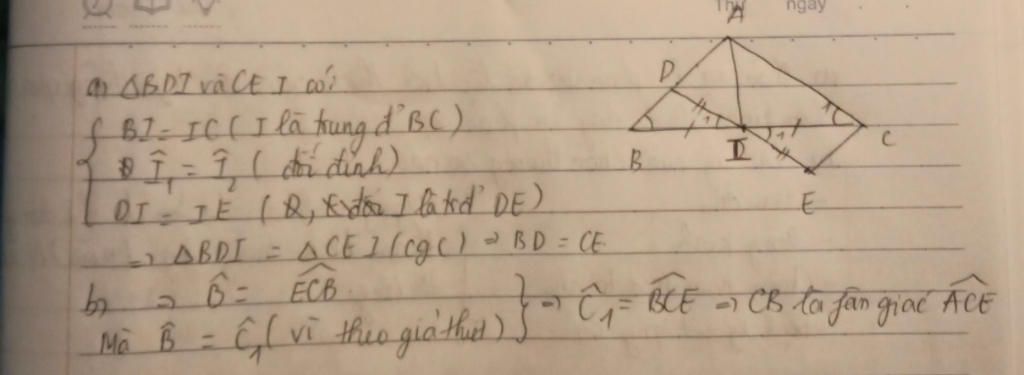 Thứ ngày
A
a) ΔBDI và CE I có:
BI = IC ( I là trung đ' BC)
Î₁ = Î₂ ( đối đỉnh)
DI = IE ( I là trđ' DE)
=> ΔBDI = ΔCEI (cgc) => BD = CE
b) => B̂ = ECB̂
Mà B̂ = Ĉ₁ ( vì theo giả thuyết) } => Ĉ₁ = BCÊ => CB là fân giác ACÊ
D
1
1
1
B
I
C
E